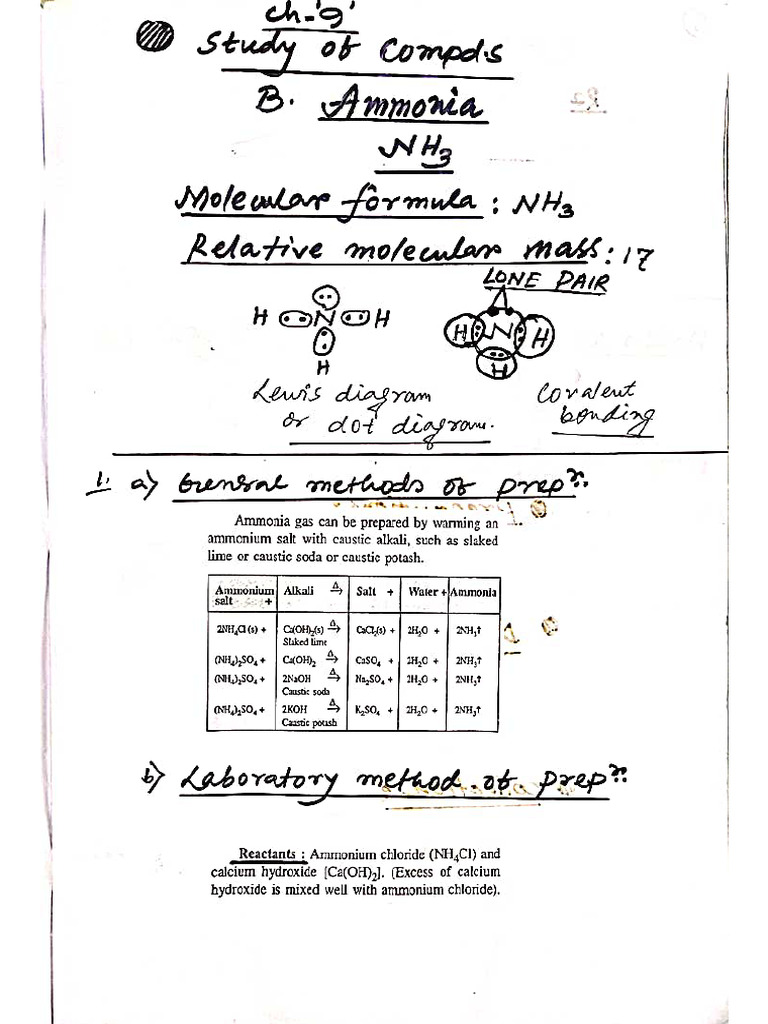 ch-'9'
Study of Compds
B. Ammonia
NH3
Molecular formula : NH3
Relative molecular mass : 17
LONE PAIR
H N H
H
H N H
H
Lewis diagram
or dot diagram.
Covalent
bonding
1. a) General methods of prepn.
Ammonia gas can be prepared by warming an
ammonium salt with caustic alkali, such as slaked
lime or caustic soda or caustic potash.
Ammonium salt + Alkali Δ→ Salt + Water + Ammonia
2NH4Cl (s) + Ca(OH)2(s) Δ→ CaCl2(s) + 2H2O + 2NH3↑
Slaked lime
(NH4)2SO4 + Ca(OH)2 Δ→ CaSO4 + 2H2O + 2NH3↑
(NH4)2SO4 + 2NaOH Δ→ Na2SO4 + 2H2O + 2NH3↑
Caustic soda
(NH4)2SO4 + 2KOH Δ→ K2SO4 + 2H2O + 2NH3↑
Caustic potash
b) Laboratory method of prepn.
Reactants : Ammonium chloride (NH4Cl) and
calcium hydroxide [Ca(OH)2]. (Excess of calcium
hydroxide is mixed well with ammonium chloride).